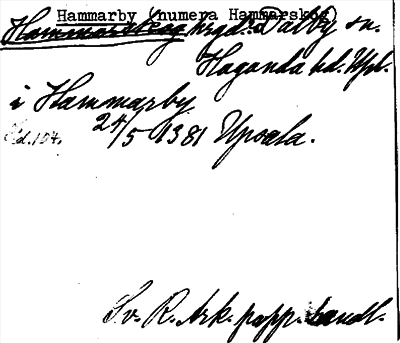 Hammarby (numera Hammarskog)
Hammarskog hrgd. Dalby sn.
Hagunda hd. Upl.
i Hammarby
Sd. 104. 24/5 1381 Upsala.
Sv. R. Ark. papp. handl.